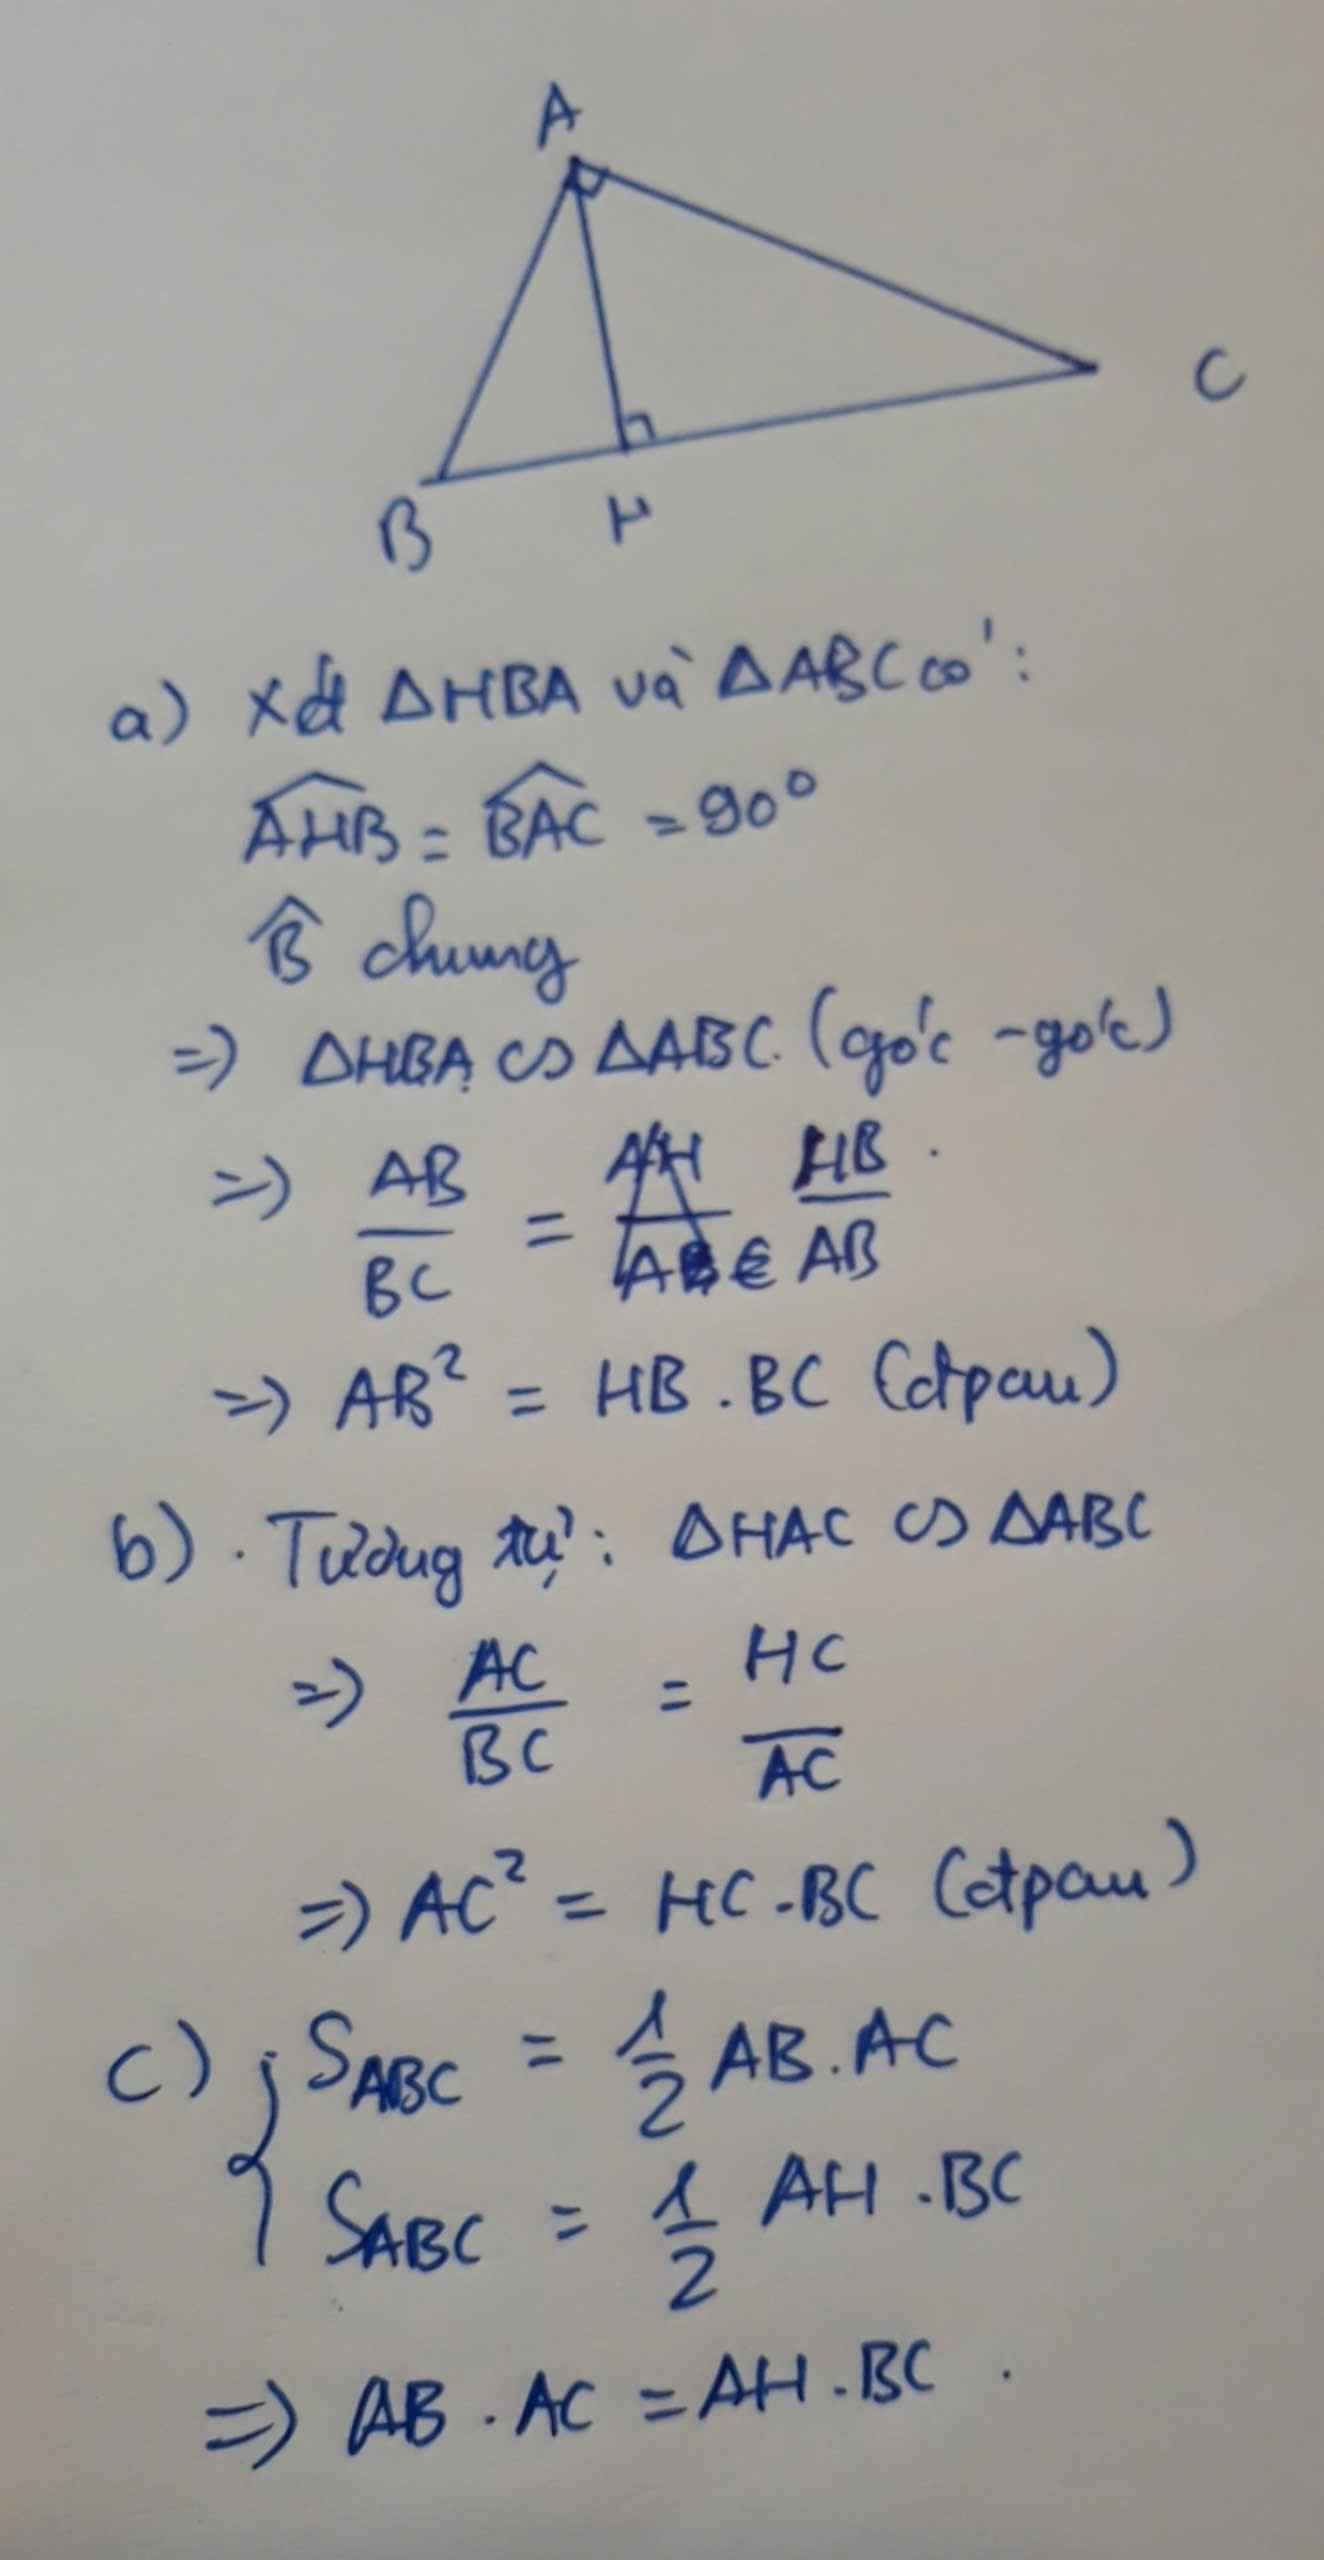 A
C
B
H
a) Xét ΔHBA và ΔABC có:
\widehat{AHB} = \widehat{BAC} = 90°
\widehat{B} chung
=> ΔHBA ∽ ΔABC (góc - góc)
=> AB/BC = HB/AB .
=> AB² = HB . BC (đpcm)
b) . Tương tự: ΔHAC ∽ ΔABC
=> AC/BC = HC/AC
=> AC² = HC . BC (đpcm)
c) { S_ABC = 1/2 AB . AC
S_ABC = 1/2 AH . BC
=> AB . AC = AH . BC .